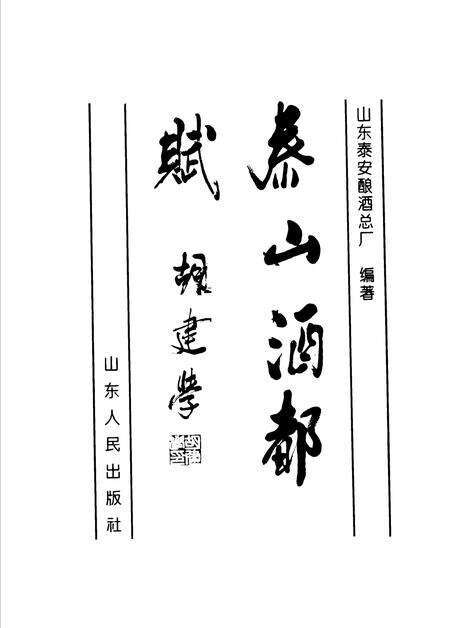 山东泰安酿酒总厂 编著
泰山酒都
赋
胡建学
山东人民出版社